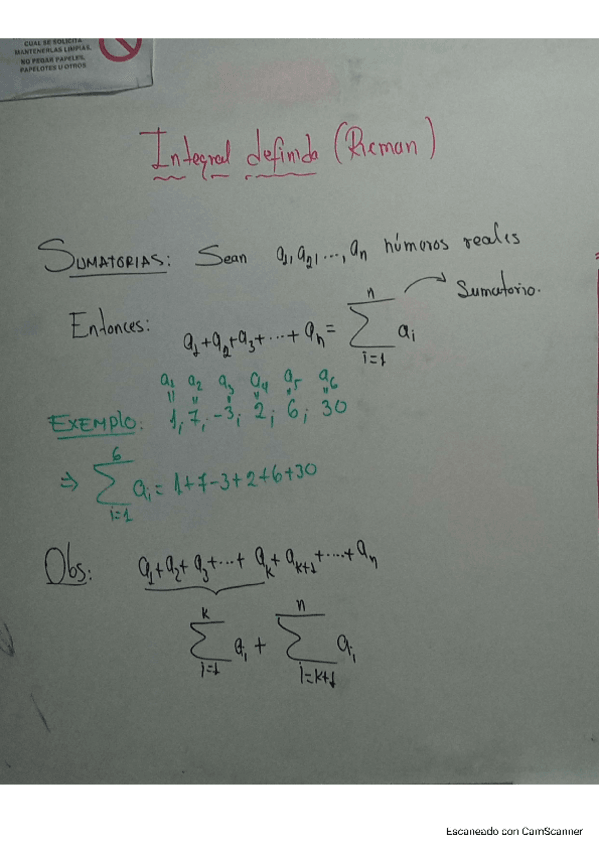 CUAL SE SOLICITA
MANTENERLAS LIMPIAS.
NO PEGAR PAPELES,
PAPELOTES U OTROS
Integral definida (Rieman)
SUMATORIAS: Sean a₁, a₂, ..., aₙ números reales
Entonces: a₁+a₂+a₃+...+aₙ = ∑ᵢ₌₁ⁿ aᵢ → Sumatorio.
a₁ a₂ a₃ a₄ a₅ a₆
EXEMPLO: 1, 7, -3, 2; 6; 30
⇒ ∑ᵢ₌₁⁶ aᵢ = 1+7-3+2+6+30
Obs: a₁+a₂+a₃+...+aₖ+aₖ₊₁+...+aₙ
∑ᵢ₌₁ᵏ aᵢ + ∑ᵢ₌ₖ₊₁ⁿ aᵢ
Escaneado con CamScanner